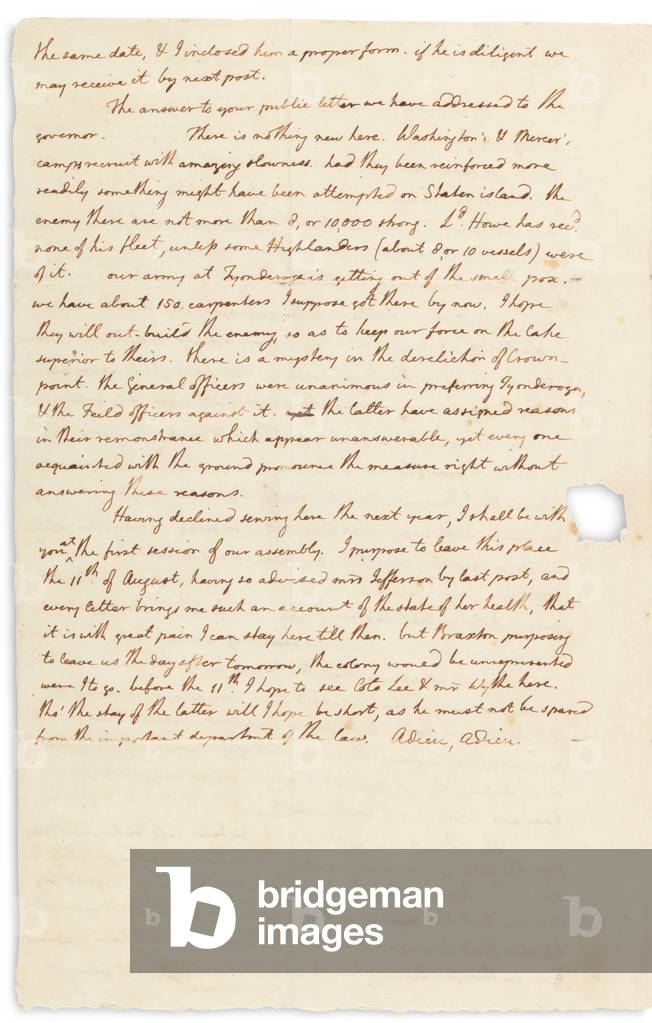 the same date, & I inclosed him a proper form. if he is diligent we
may receive it by next post.
The answer to your public letter we have addressed to the
governor. There is nothing new here. Washington's & Mercer's
camps recruit with amazing slowness. had they been reinforced more
readily something might have been attempted on Staten island. the
enemy there are not more than 8, or 10,000 strong. Ld. Howe has recd.
none of his fleet, unless some Highlanders (about 8, or 10 vessels) were
of it. our army at Tyonderoga is getting out of the small pox. -
we have about 150. carpenters I suppose got there by now. I hope
they will out-build the enemy, so as to keep our force on the lake
superior to theirs. there is a mystery in the dereliction of Crown-
point. the General officers were unanimous in preferring Tyonderoga,
& the Feild officers against it. the latter have assigned reasons
in their remonstrance which appear unanswerable, yet every one
acquainted with the ground pronounce the measure right without
answering these reasons.
Having declined serving here the next year, I shall be with
you at the first session of our assembly. I purpose to leave this place
the 11th. of August, having so advised mrs Jefferson by last post, and
every letter brings me such an account of the state of her health, that
it is with great pain I can stay here till then. but Braxton purposing
to leave us the day after tomorrow, the colony would be unrepresented
were I to go. before the 11th. I hope to see Colo Lee & mr Wythe here.
tho' the stay of the latter will I hope be short, as he must not be spared
from the important department of the law. Adieu, adieu.
b bridgeman
images